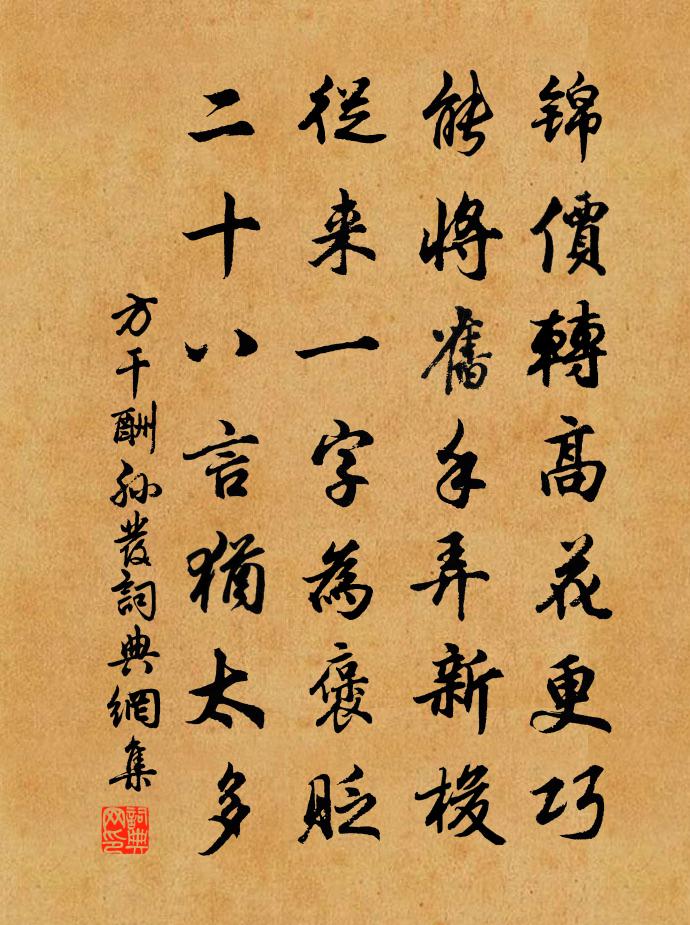 錦價轉高花更巧
能將舊手弄新梭
從来一字為褒貶
二十八言猶太多
方干酬孫發詞典網集
詞典网印